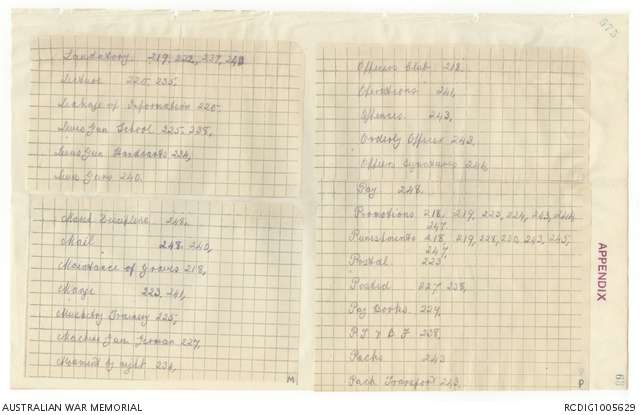 575
Laundatory 219, 222, 237, 240
Lecture 220, 235,
Leakage of Information 220.
Lewis Gun School 225, 238,
Lewis Gun Handcarts 236,
Lewis Guns 240.
March Discipline 248,
Mail 248, 240,
Maintance of Graves 218,
Mange 223, 241,
Musketry Training 225,
Machine Guns German 227,
Movement by night 236,
M
Officers Club 218.
Operations 241,
Offences 243,
Orderly Officer 243,
Officers Signatures 246,
Pay 248.
Promotions 218, 219, 222, 224, 243, 244,
247.
Punishments 218, 219, 228, 230, 243, 245,
247,
Postal 223
Posted 227, 238,
Pay Books 227,
P.T. & B.F. 238,
Packs 243
Pack Transport 243,
P
APPENDIX
AUSTRALIAN WAR MEMORIAL
RCDIG1005629